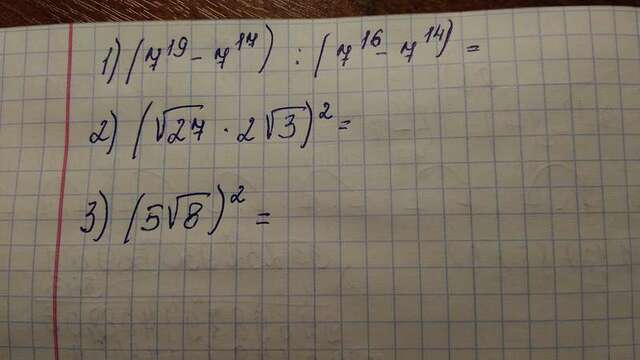 1) (7¹⁹ - 7¹⁷) : (7¹⁶ - 7¹⁴) =
2) (√27 · 2√3)² =
3) (5√8)² =